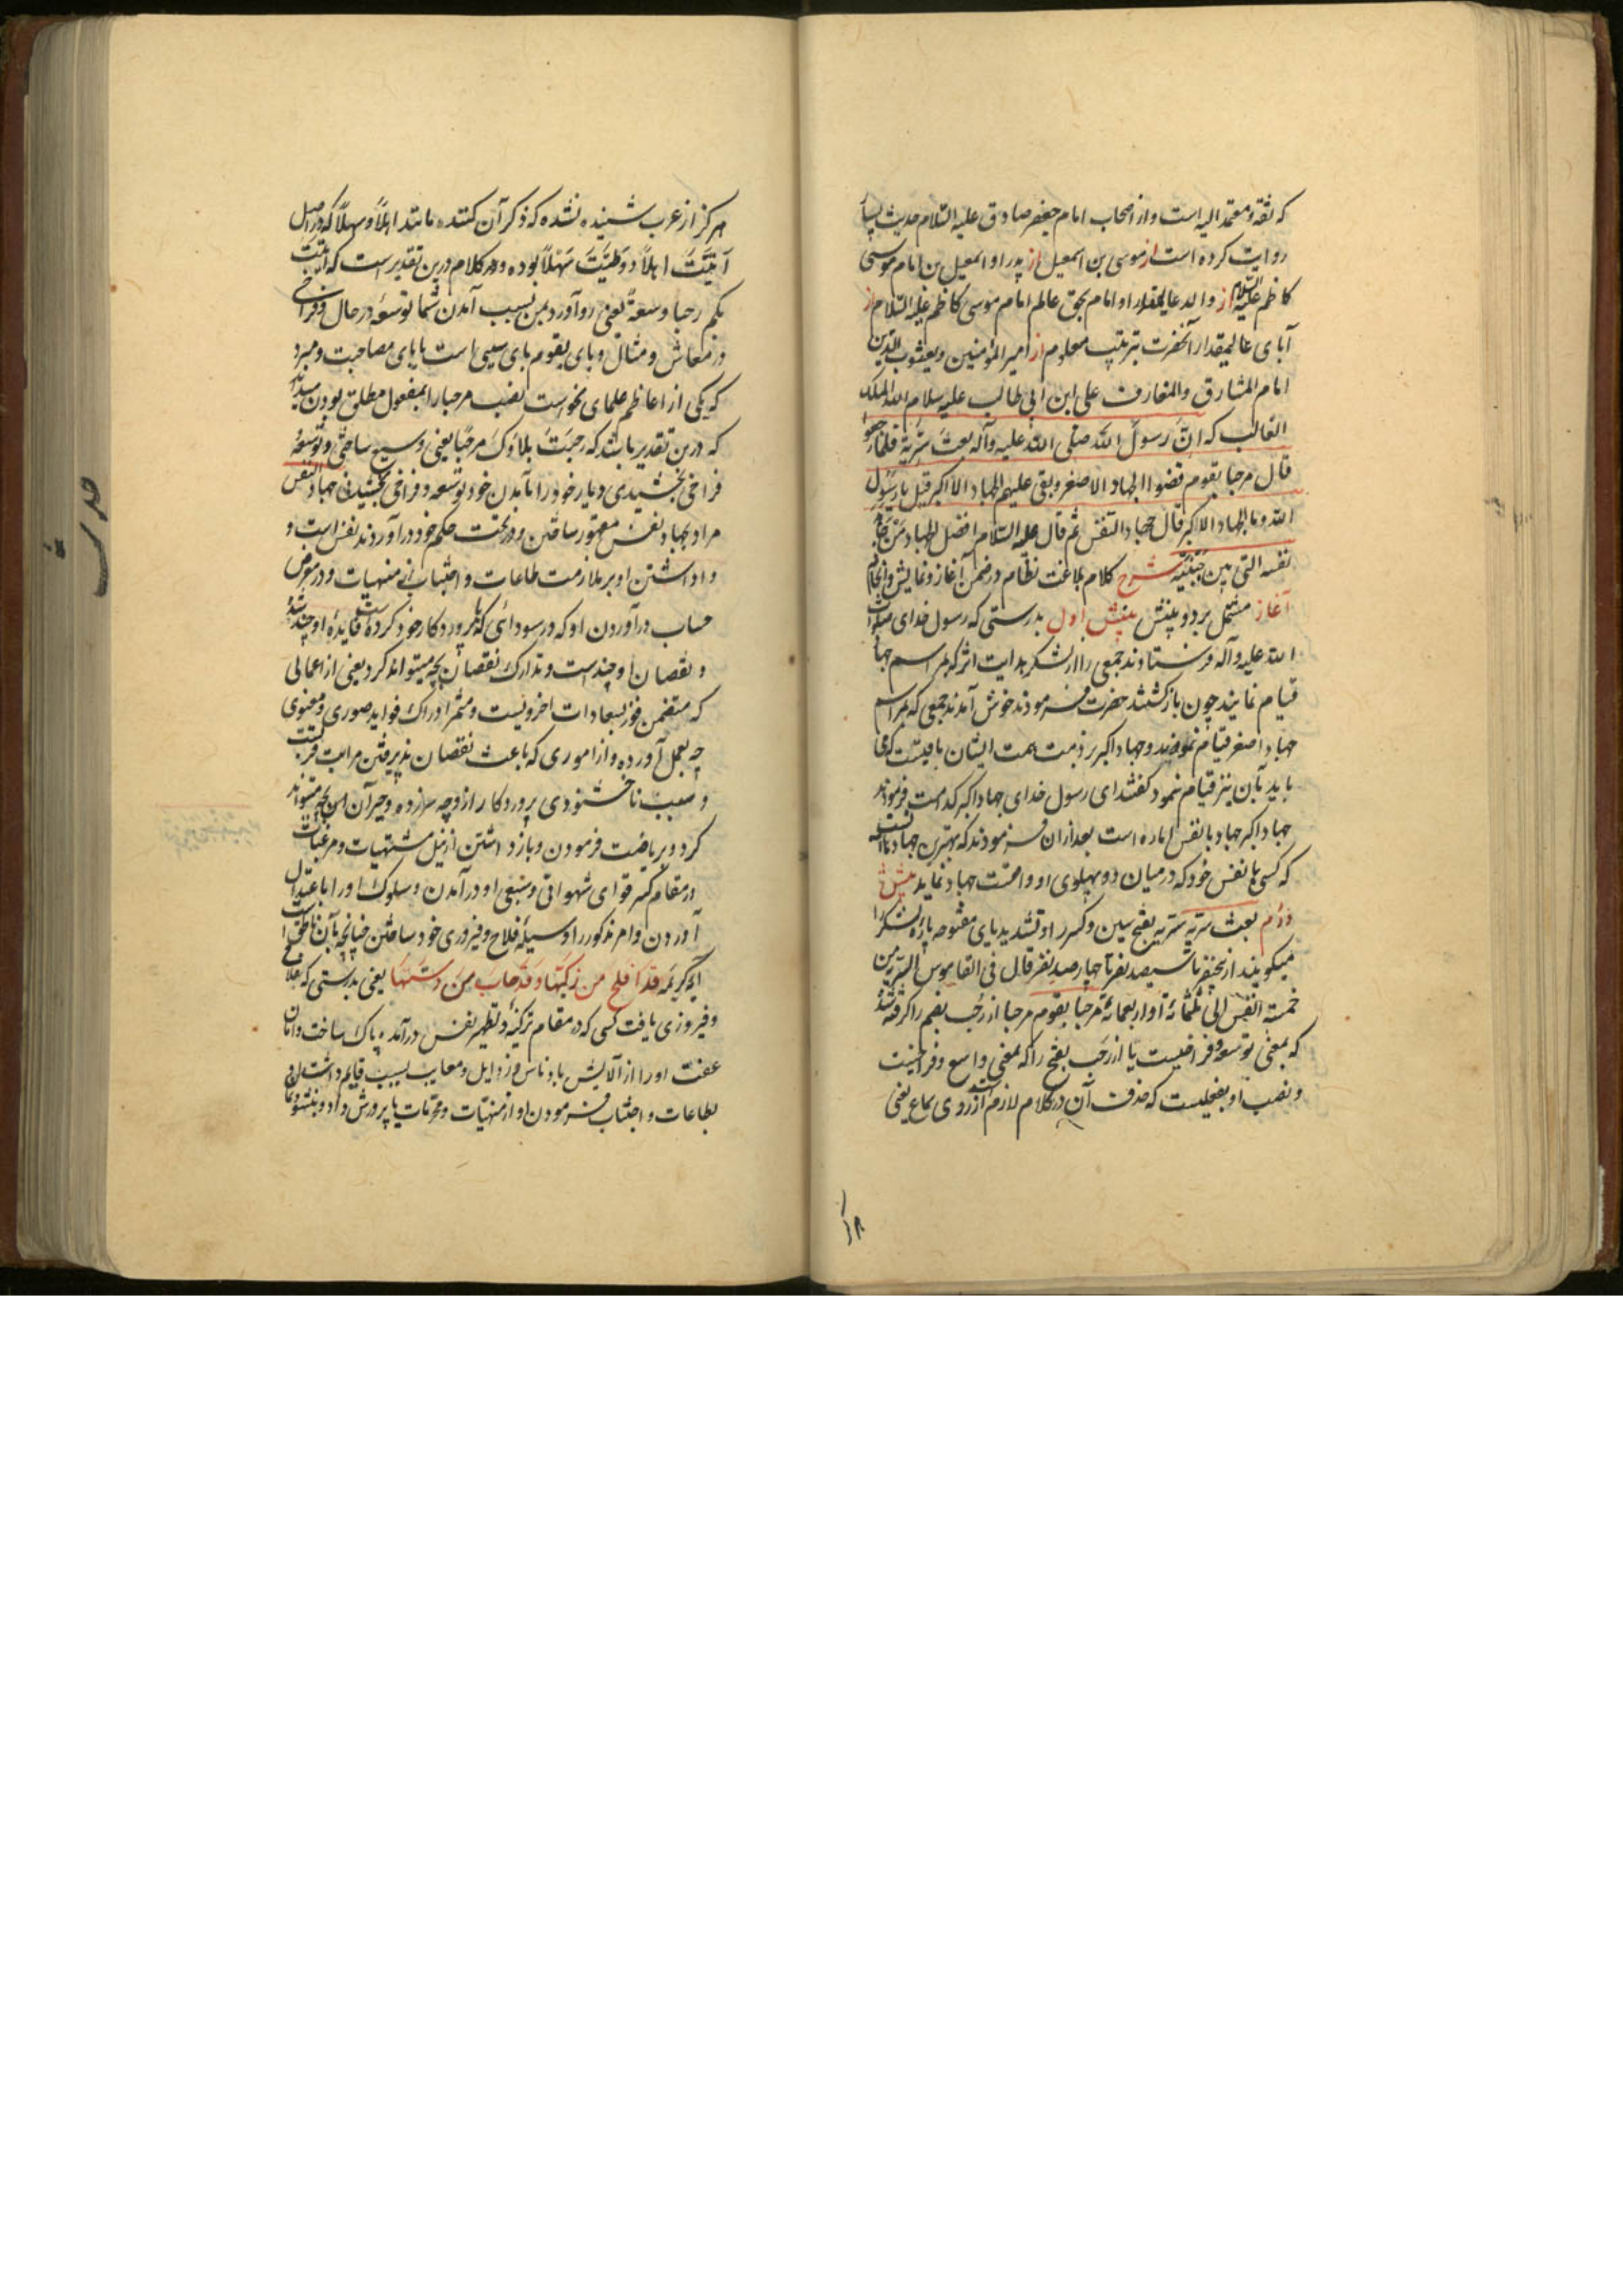 که ثقه و معتمد الیه است و از اصحاب امام جعفر صادق علیه السلام حدیث بسیار
روایت کرده است از موسی بن اسمعیل از پدر او اسمعیل بن امام موسی
کاظم علیه السلام از والد عالیمقدار او امام بحق عالم امام موسی کاظم علیه السلام از
آبای عالیمقدار آنحضرت بترتیب معلوم از امیر المؤمنین و یعسوب الدین
امام المشارق والمغارب علی ابن ابی طالب علیه سلام الله الملک
الغالب که انّ رسولَ الله صلّی الله علیه وآله بعثَ سَرِیّة فلمّا رجعوا
قال مرحبا بقوم قضوا الجهاد الاصغر وبقی علیهم الجهاد الاکبر قیل یا رسول
الله وما الجهاد الاکبر قال جهاد النفس ثم قال علیه السلام افضل الجهاد مَن جاهد
نفسه التی بین جنبیه شرح کلام بلاغت نظام در ضمن آغاز و نمایش و انجام
آغاز مشتمل بر دو بینش بینش اول بدرستی که رسول خدای صلوات
الله علیه وآله فرستادند جمعی را از لشکر هدایت اثر که بمراسم جهاد
قیام نمایند چون بازگشتند حضرت فرمودند خوش آمدند جمعی که بمراسم
جهاد اصغر قیام نمودند و جهاد اکبر بر ذمت همت ایشان باقیست که می
باید بآن نیز قیام نمود گفتند ای رسول خدای جهاد اکبر کدامست فرمودند
جهاد اکبر جهاد با نفس اماره است بعد از آن فرمودند که بهترین جهادها آنست
که کسی با نفس خود که در میان دو پهلوی او واقعست جهاد نماید بینش
دوم بعث سریه سریه بفتح سین و کسر را و تشدید یای مفتوحه پاره لشکر را
میگویند از پنج نفر تا سیصد نفر یا چهار صد نفر قال فی القاموس السریه من
خمسة انفس الی ثلثمائة او اربعمائة مرحبا بقوم مرحبا از رُحب بضم را گرفته شده
که بمعنی توسعه و فراخیست یا از رَحب بفتح را که بمعنی واسع و فراخیست
و نصب او بفعلیست که حذف آن در کلام لازم است از روی سماع یعنی
هرگز از عرب شنیده نشده که ذکر آن کنند مانند اهلاً وسهلاً که در اصل
اَتَیْتَ اهلاً و وَطَیْتَ سَهْلاً بوده و در کلام درین تقدیر است که اتیت
بکم رحبا وسعةً یعنی رو آورد بمن بسبب آمدن شما توسعه در حال و فراخی
در معاش و منال و بای بقوم بای سببی است یا بای مصاحبت و مبرد
که یکی از اعاظم علمای نحواست نصب مرحبا را بمفعول مطلق بودن میداند
که درین تقدیر باشد که رحبَتْ بلادُکَ مرحَبًا یعنی وسیع ساختی و توسعه
فراخی بخشیدی دیار خود را بآمدن خود توسعه و فراخی بخشیدنی جهاد النفس
مراد بجهاد نفس مقهور ساختن و در تحت حکم خود در آوردند نفس است و
واداشتن او بر ملازمت طاعات و اجتناب از منهیات و در معرض
حساب درآوردن او که در سودائی که با پروردکار خود کرده است فایده او چند شده
و نقصان او چند است و تدارک نقصان بچه میتواند کرد یعنی از اعمالی
که متضمن فوز بسعادات اخرویست و مثمر ادراک فواید صوری و معنوی
چه بعمل آورده و از اموری که باعث نقصان پذیرفتن مراتب قربست
و سبب ناخشنودی پروردکار از و چه سر زده و جبر آن بچه میتواند
کرد و بریاضت فرمودن و باز داشتن از نیل مشتهیات و مرغبات
در مقام کسر قوای شهوانی و سبعی او در آمدن و سلوک او را باعتدال
آوردن و امر مذکور را وسیله فلاح و فیروزی خود ساختن چنانچه بآن ناطق است
آیه کریمه قد افلح من زکیها وقد خاب مَن دسّیها یعنی بدرستی که فلاح
و فیروزی یافت کسی که در مقام تزکیه و تطهیر نفس درآمده پاک ساخت دامان
عفت او را از آلایش بادناس و رذایل و معایب بسبب قایم داشتن او
بطاعات و اجتناب فرمودن او از منهیّات و محرمات یا پرورش داد و بنشو و نما